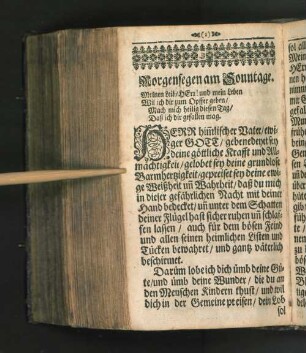 (1)
Morgensegen am Sonntage.
Meinen Leib / HErr! und mein Leben
Wil ich dir zum Opffer geben /
Mach mich heilig diesen Tag /
Daß ich dir gefallen mag.
HERR himlischer Vater / ewi-
ger GOTT / gebenedeyet sey
deine göttliche Krafft und All-
mächtigkeit / gelobet sey deine grundlose
Barmhertzigkeit / gepreiset sey deine ewi-
ge Weißheit uñ Wahrheit / daß du mich
in dieser gefährlichen Nacht mit deiner
Hand bedecket / uñ unter dem Schatten
deiner Flügel hast sicher ruhen uñ schlaf-
fen lassen / auch für dem bösen Feind
und allen seinen heimlichen Listen und
Tücken bewahret / und gantz väterlich
beschirmet.
Darüm lobe ich dich ümb deine Gü-
te / und ümb deine Wunder / die du an
den Menschen Kindern thust / und wil
dich in der Gemeine preisen / dein Lob
sol